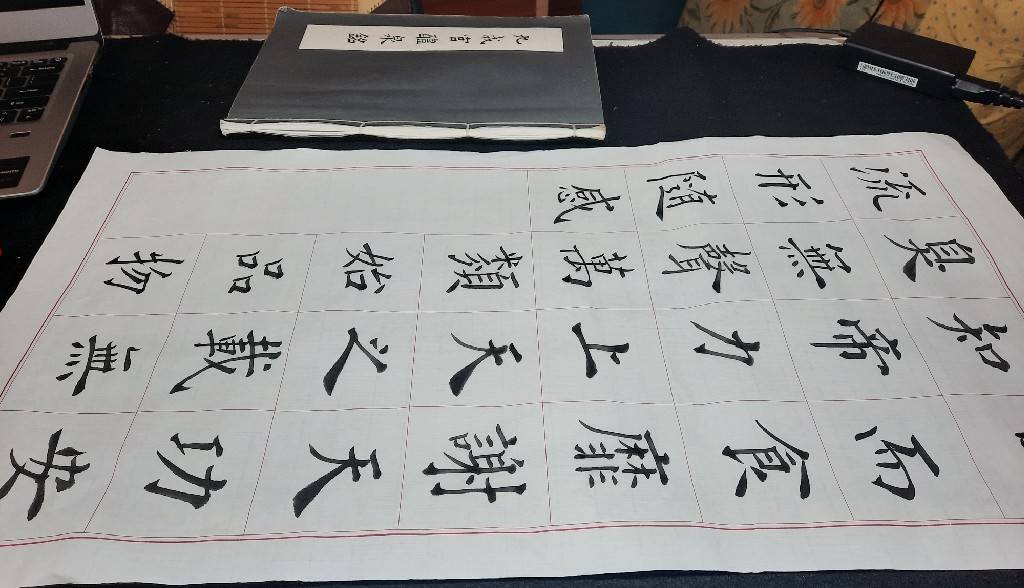 九成宮醴泉銘
而食靡謝天功安
知帝力上天之載無
臭無聲萬類始品物
流形隨感